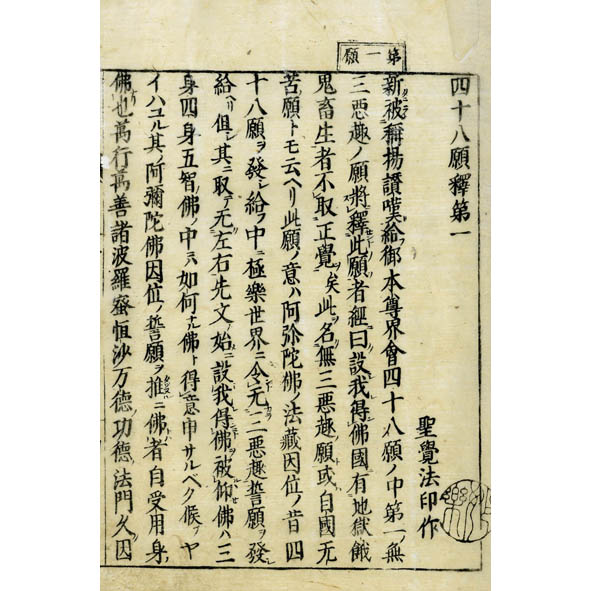 第一願
四十八願釋第一
聖覺法印作
新被稱揚讃嘆給御本尊界會四十八願ノ中第一無
三惡趣ノ願將釋此願者經曰設我得佛國有地獄餓
鬼畜生者不取正覺矣此名無三惡趣願或自國无
苦願トモ云ヘリ此願ノ意ハ阿弥陀佛ノ法藏因位ノ昔四
十八願ヲ發シ給フ中ニ極樂世界ニ令无三惡趣誓願ヲ發
給ヘリ但シ其ニ取テ无左右先文ノ始ニ設我得佛被仰佛ハ三
身四身五智ノ佛ノ中ニハ如何ナル佛ト得意申サルベク候ゾヤ
イハユル其ノ阿彌陀佛因位ノ誓願ヲ推ニ佛者自受用身ノ
佛也萬行萬善諸波羅蜜恒沙万德功德法門久因